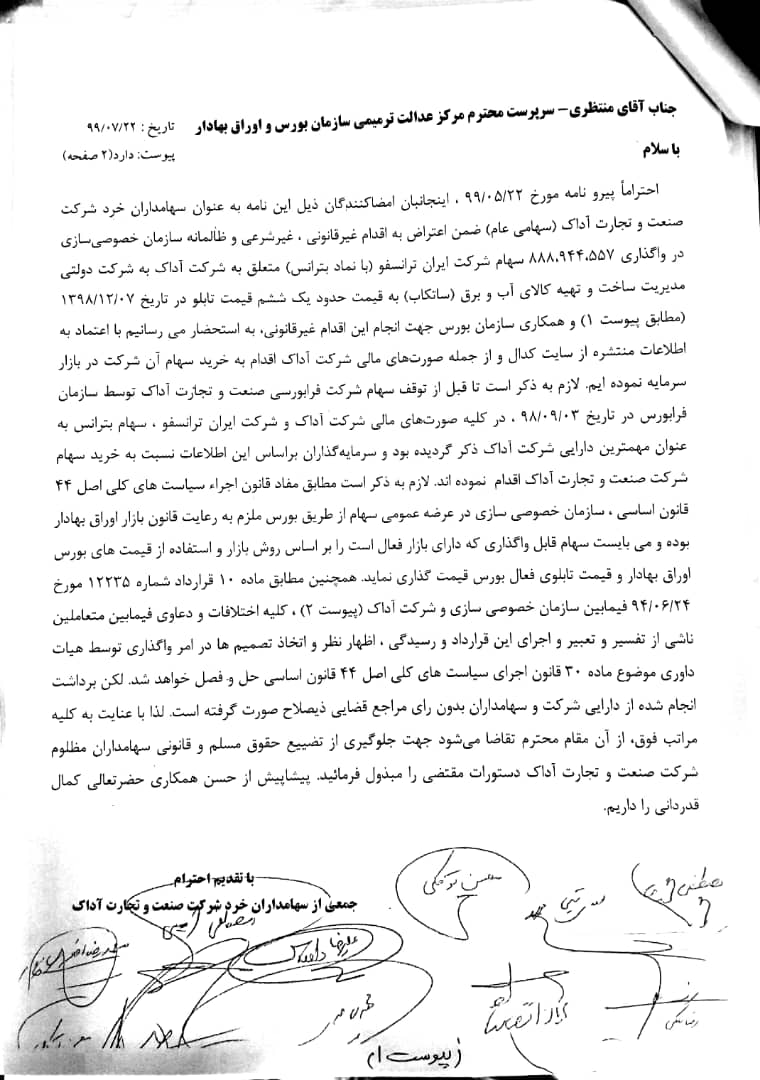 جناب آقای منتظری– سرپرست محترم مرکز عدالت ترمیمی سازمان بورس و اوراق بهادار
تاریخ : ۹۹/۰۷/۲۲
با سلام
پیوست: دارد(۲ صفحه)
احتراماً پیرو نامه مورخ ۹۹/۰۵/۲۲ ، اینجانبان امضاکنندگان ذیل این نامه به عنوان سهامداران خرد شرکت
صنعت و تجارت آداک (سهامی عام) ضمن اعتراض به اقدام غیرقانونی ، غیرشرعی و ظالمانه سازمان خصوصی‌سازی
در واگذاری ۸۸۸،۹۴۴،۵۵۷ سهام شرکت ایران ترانسفو (با نماد بترانس) متعلق به شرکت آداک به شرکت دولتی
مدیریت ساخت و تهیه کالای آب و برق (ساتکاب) به قیمت حدود یک ششم قیمت تابلو در تاریخ ۱۳۹۸/۱۲/۰۷
(مطابق پیوست ۱) و همکاری سازمان بورس جهت انجام این اقدام غیرقانونی، به استحضار می رسانیم با اعتماد به
اطلاعات منتشره از سایت کدال و از جمله صورت‌های مالی شرکت آداک اقدام به خرید سهام آن شرکت در بازار
سرمایه نموده ایم. لازم به ذکر است تا قبل از توقف سهام شرکت فرابورسی صنعت و تجارت آداک توسط سازمان
فرابورس در تاریخ ۹۸/۰۹/۰۳ ، در کلیه صورت‌های مالی شرکت آداک و شرکت ایران ترانسفو ، سهام بترانس به
عنوان مهمترین دارایی شرکت آداک ذکر گردیده بود و سرمایه‌گذاران براساس این اطلاعات نسبت به خرید سهام
شرکت صنعت و تجارت آداک اقدام نموده اند. لازم به ذکر است مطابق مفاد قانون اجراء سیاست های کلی اصل ۴۴
قانون اساسی ، سازمان خصوصی سازی در عرضه عمومی سهام از طریق بورس ملزم به رعایت قانون بازار اوراق بهادار
بوده و می بایست سهام قابل واگذاری که دارای بازار فعال است را بر اساس روش بازار و استفاده از قیمت های بورس
اوراق بهادار و قیمت تابلوی فعال بورس قیمت گذاری نماید. همچنین مطابق ماده ۱۰ قرارداد شماره ۱۲۲۳۵ مورخ
۹۴/۰۶/۲۴ فیمابین سازمان خصوصی سازی و شرکت آداک (پیوست ۲) ، کلیه اختلافات و دعاوی فیمابین متعاملین
ناشی از تفسیر و تعبیر و اجرای این قرارداد و رسیدگی ، اظهار نظر و اتخاذ تصمیم ها در امر واگذاری توسط هیات
داوری موضوع ماده ۳۰ قانون اجرای سیاست های کلی اصل ۴۴ قانون اساسی حل و فصل خواهد شد. لکن برداشت
انجام شده از دارایی شرکت و سهامداران بدون رای مراجع قضایی ذیصلاح صورت گرفته است. لذا با عنایت به کلیه
مراتب فوق، از آن مقام محترم تقاضا می‌شود جهت جلوگیری از تضییع حقوق مسلم و قانونی سهامداران مظلوم
شرکت صنعت و تجارت آداک دستورات مقتضی را مبذول فرمائید. پیشاپیش از حسن همکاری حضرتعالی کمال
قدردانی را داریم.
با تقدیم احترام
جمعی از سهامداران خرد شرکت صنعت و تجارت آداک
(پیوست ۱)